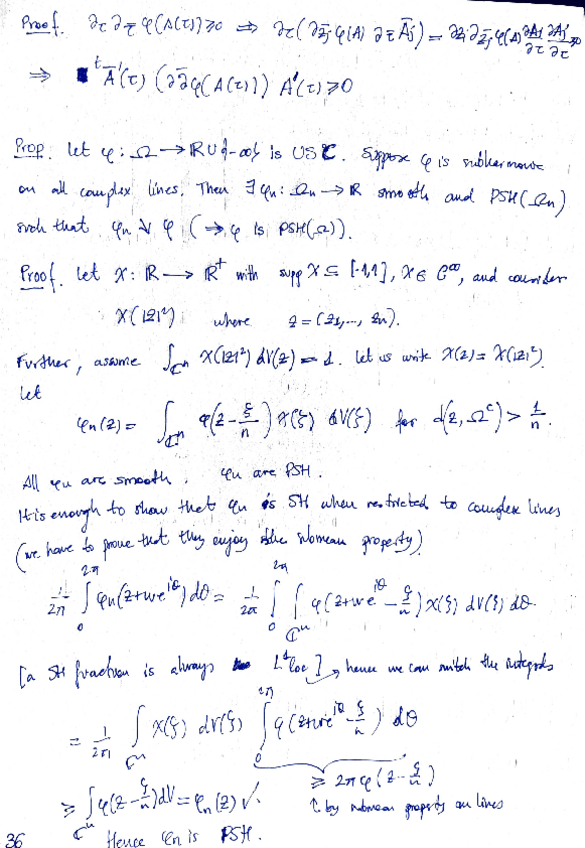 Proof. ∂τ ∂τ̄ φ(A(τ)) ≥ 0 ⇒ ∂τ(∂z̄j φ(A) ∂τ̄ Āj) = ∂zi ∂z̄j φ(A) ∂Ai/∂τ ∂Āj/∂τ̄ ≥ 0
⇒ ᵗĀ'(τ) (∂∂̄φ(A(τ))) A'(τ) ≥ 0
Prop. let φ: Ω → ℝ∪{-∞} is USC. Suppose φ is subharmonic
on all complex lines. Then ∃ φn: Ωn → ℝ smooth and PSH(Ωn)
such that φn ↘ φ (⇒ φ is PSH(Ω)).
Proof. let χ: ℝ → ℝ⁺ with supp χ ⊆ [-1,1], χ ∈ C^∞, and consider
χ(|z|²) where z = (z1,..., zn).
Further, assume ∫_ℂⁿ χ(|z|²) dV(z) = 1. let us write χ(z) = χ(|z|²).
let
φn(z) = ∫_ℂⁿ φ(z - ξ/n) χ(ξ) dV(ξ) for d(z, Ω^c) > 1/n.
All φn are smooth. φn are PSH.
It is enough to show that φn is SH when restricted to complex lines
(we have to prove that they enjoy the submean property)
1/2π ∫_0^2π φn(z+we^iθ) dθ = 1/2π ∫_0^2π ∫_ℂⁿ φ(z+we^iθ - ξ/n) χ(ξ) dV(ξ) dθ
[a SH function is always L¹loc] → hence we can switch the integrals
= 1/2π ∫_ℂⁿ χ(ξ) dV(ξ) ∫_0^2π φ(z+we^iθ - ξ/n) dθ
≥ 2πφ(z - ξ/n)
≥ ∫_ℂⁿ φ(z - ξ/n) dV = φn(z) ✓.
↑ by submean property on lines
Hence φn is PSH.
36